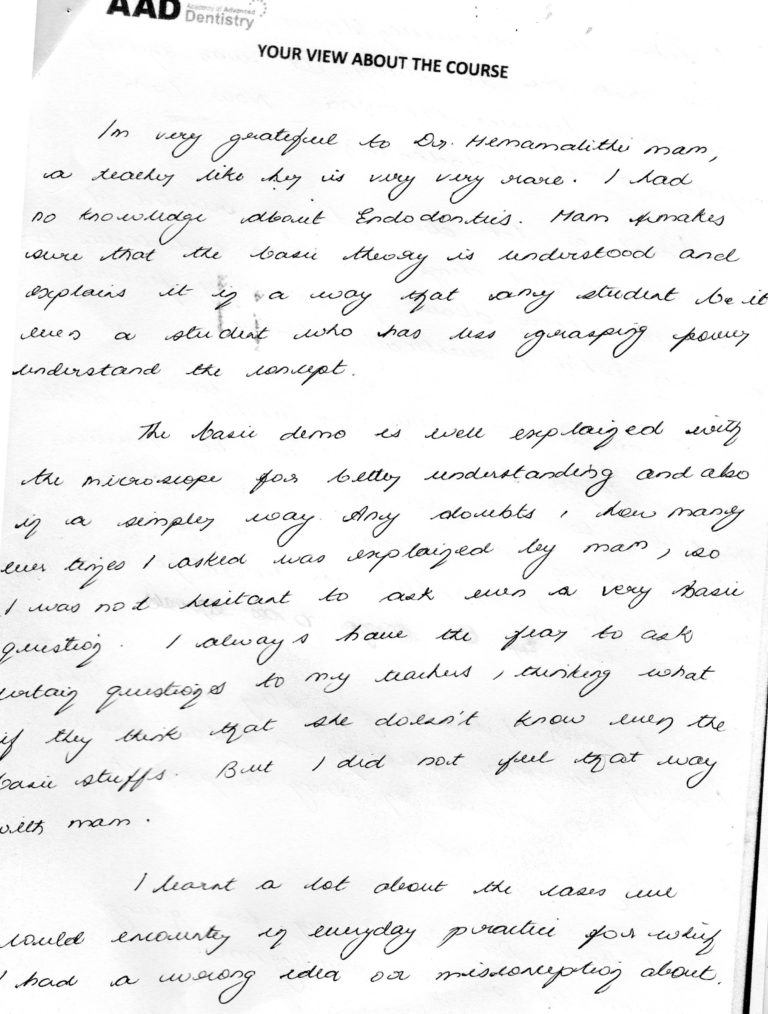 AAD Academy of Advanced
Dentistry
YOUR VIEW ABOUT THE COURSE
Im very grateful to Dr. Hemamalithi mam,
a teacher like her is very very rare. I had
no knowledge about Endodontics. Mam makes
sure that the basic theory is understood and
explains it in a way that any student be it
even a student who has less grasping power
understand the concept.
The basic demo is well explained with
the microscope for better understanding and also
in a simpler way. Any doubts, how many
ever times I asked was explained by mam, so
I was not hesitant to ask even a very basic
question. I always have the fear to ask
certain questions to my teachers, thinking what
if they think that she doesn't know even the
basic stuffs. But I did not feel that way
with mam.
I learnt a lot about the cases we
could encounter in everyday practice for which
I had a wrong idea or misconception about.